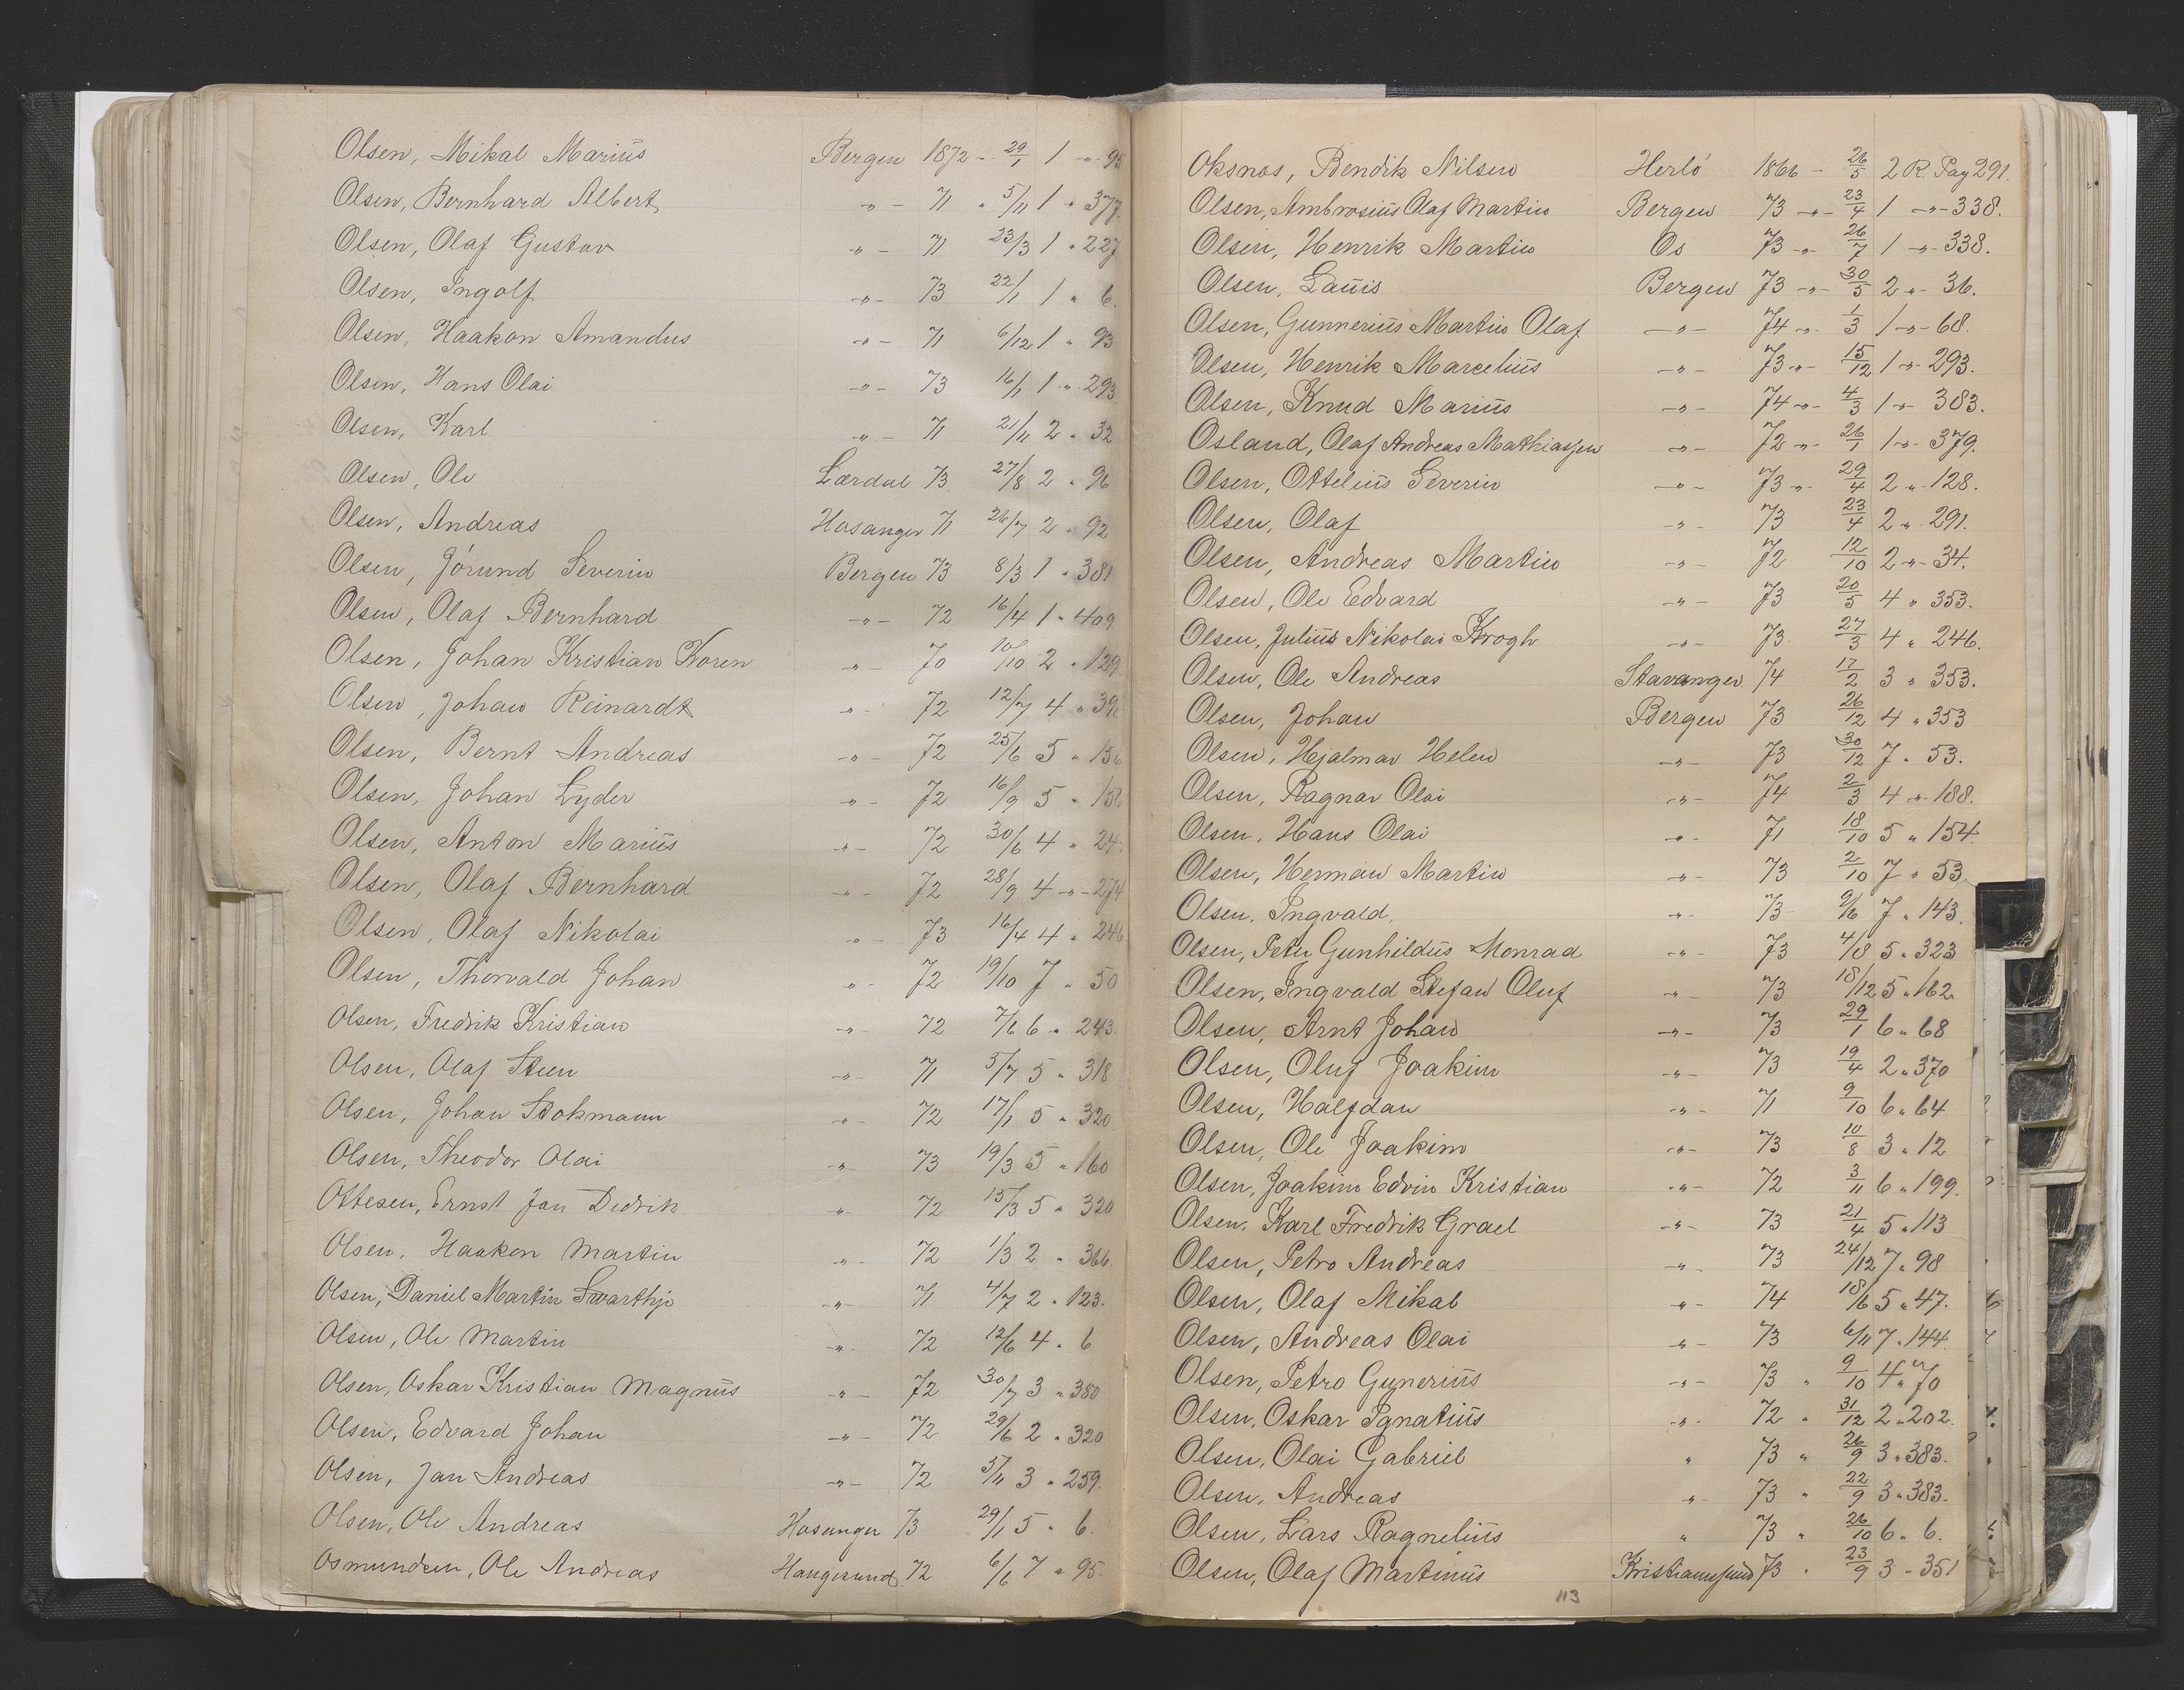 Olsen, Mikal Marius Bergen 1872 - 29/1 1 -"- 95
Olsen, Bernhard Albert -"- 71 " 5/11 1 " 377.
Olsen, Olaf Gustav -"- 71 23/3 1 " 227
Olsen, Ingolf -"- 73 22/1 1 " 6.
Olsen, Haakon Amandus -"- 71 6/12 1 " 93
Olsen, Hans Olai -"- 73 16/1 1 " 293
Olsen, Karl -"- 71 21/11 2 " 32
Olsen, Ole Lærdal 73 27/8 2 " 96
Olsen, Andreas Hosanger 71 26/7 2 " 92
Olsen, Jörund Severin Bergen 73 8/3 1 " 381
Olsen, Olaf Bernhard -"- 72 16/4 1 " 409
Olsen, Johan Kristian Koren " - 70 10/10 2 " 129
Olsen, Johan Reinardt " - 72 12/7 4 "
Olsen, Bernt Andreas -"- 72 25/6 5 "
Olsen, Johan Lyder -"- 72 16/9 5 "
Olsen, Anton Marius -"- 72 30/6 4 "
Olsen, Olaf Bernhard -"- 72 28/9 4 -"- 274
Olsen, Olaf Nikolai " - 73 16/4 4 " 246
Olsen, Thorvald Johan " - 72 19/10 7 " 50
Olsen, Fredrik Kristian -"- 72 7/6 6 " 243.
Olsen, Olaf Steen -"- 71 5/7 5 " 318
Olsen, Johan Stokmann -"- 72 17/1 5 " 320
Olsen, Theodor Olai " - 73 19/3 5 " 160
Ottesen, Ernst Jan Dedrik " - 72 15/3 5 " 320
Olsen, Haakon Martin -"- 72 1/3 2 " 366
Olsen, Daniel Martin Swarthjo -"- 71 4/7 2 " 123.
Olsen, Ole Martin -"- 72 12/6 4 " 6
Olsen, Oskar Kristian Magnus " - 72 30/7 3 " 380
Olsen, Edvard Johan -"- 72 29/6 2 " 320
Olsen, Jan Andreas -"- 72 5/11 3 " 259.
Olsen, Ole Andreas Hosanger 73 29/1 5 " 6.
Osmundsen, Ole Andreas Haugesund 72 6/6 7 " 95.
Oksnos, Bendik Nilsen Herlö 1866 - 26/5 2 R. Pag 291.
Olsen, Ambrosius Olaf Martin Bergen 73 -"- 23/4 1 -"- 338.
Olsen, Henrik Martin Os 73 -"- 26/7 1 -"- 338.
Olsen, Lauis Bergen 73 -"- 30/5 2 " 36.
Olsen, Gunnerius Martin Olaf -"- 74 -"- 1/3 1 -"- 68.
Olsen, Henrik Marcelius -"- 73 -"- 15/12 1 -"- 293.
Olsen, Knud Marius -"- 74 -"- 4/3 1 -"- 383.
Osland, Olaf Andreas Mathiassen -"- 72 -"- 26/1 1 -"- 379.
Olsen, Ottelius Severin -"- 73 -"- 29/4 2 " 128.
Olsen, Olaf -"- 73 23/4 2 " 291.
Olsen, Andreas Martin -"- 72 12/10 2 -"- 34.
Olsen, Ole Edvard -"- 73 20/5 4 " 353.
Olsen, Julius Nikolai Krogh -"- 73 27/3 4 " 246.
Olsen, Ole Andreas Stavanger 74 17/2 3 " 353.
Olsen, Johan Bergen 73 26/12 4 " 353
Olsen, Hjalmar Helen -"- 73 30/12 7 " 53.
Olsen, Ragnar Olai -"- 74 2/3 4 -"- 188.
Olsen, Hans Olai -"- 71 18/10 5 " 154.
Olsen, Herman Martin -"- 73 2/10 7 " 53.
Olsen, Ingvald. -"- 73 9/6 7 " 143.
Olsen, Peter Gunhildus Monrad -"- 73 4/8 5 " 323
Olsen, Ingvald Stefan Oluf -"- 73 18/12 5 " 162
Olsen, Arnt Johan -"- 73 29/1 6 " 68
Olsen, Oluf Joakim -"- 73 19/4 2 " 370
Olsen, Halfdan -"- 71 9/10 6 " 64
Olsen, Ole Joakim -"- 73 10/8 3 " 12
Olsen, Joakim Edvin Kristian -"- 72 3/11 6 " 199.
Olsen, Karl Fredrik Grael -"- 73 21/4 5 " 113
Olsen, Petro Andreas -"- 73 24/12 7 " 98
Olsen, Olaf Mikal -"- 74 18/6 5 " 47.
Olsen, Andreas Olai -"- 73 6/11 7 " 144.
Olsen, Petro Gunerius -"- 73 " 9/10 4 " 70
Olsen, Oskar Ignatius -"- 72 " 31/12 2 " 202.
Olsen, Olai Gabriel " 73 " 26/9 3 " 383.
Olsen, Andreas -"- 73 " 22/9 3 " 383.
Olsen, Lars Ragnelius " 73 " 26/10 6 " 6.
Olsen, Olaf Martinius Kristianssund 73 " 23/9 3 - 351
113